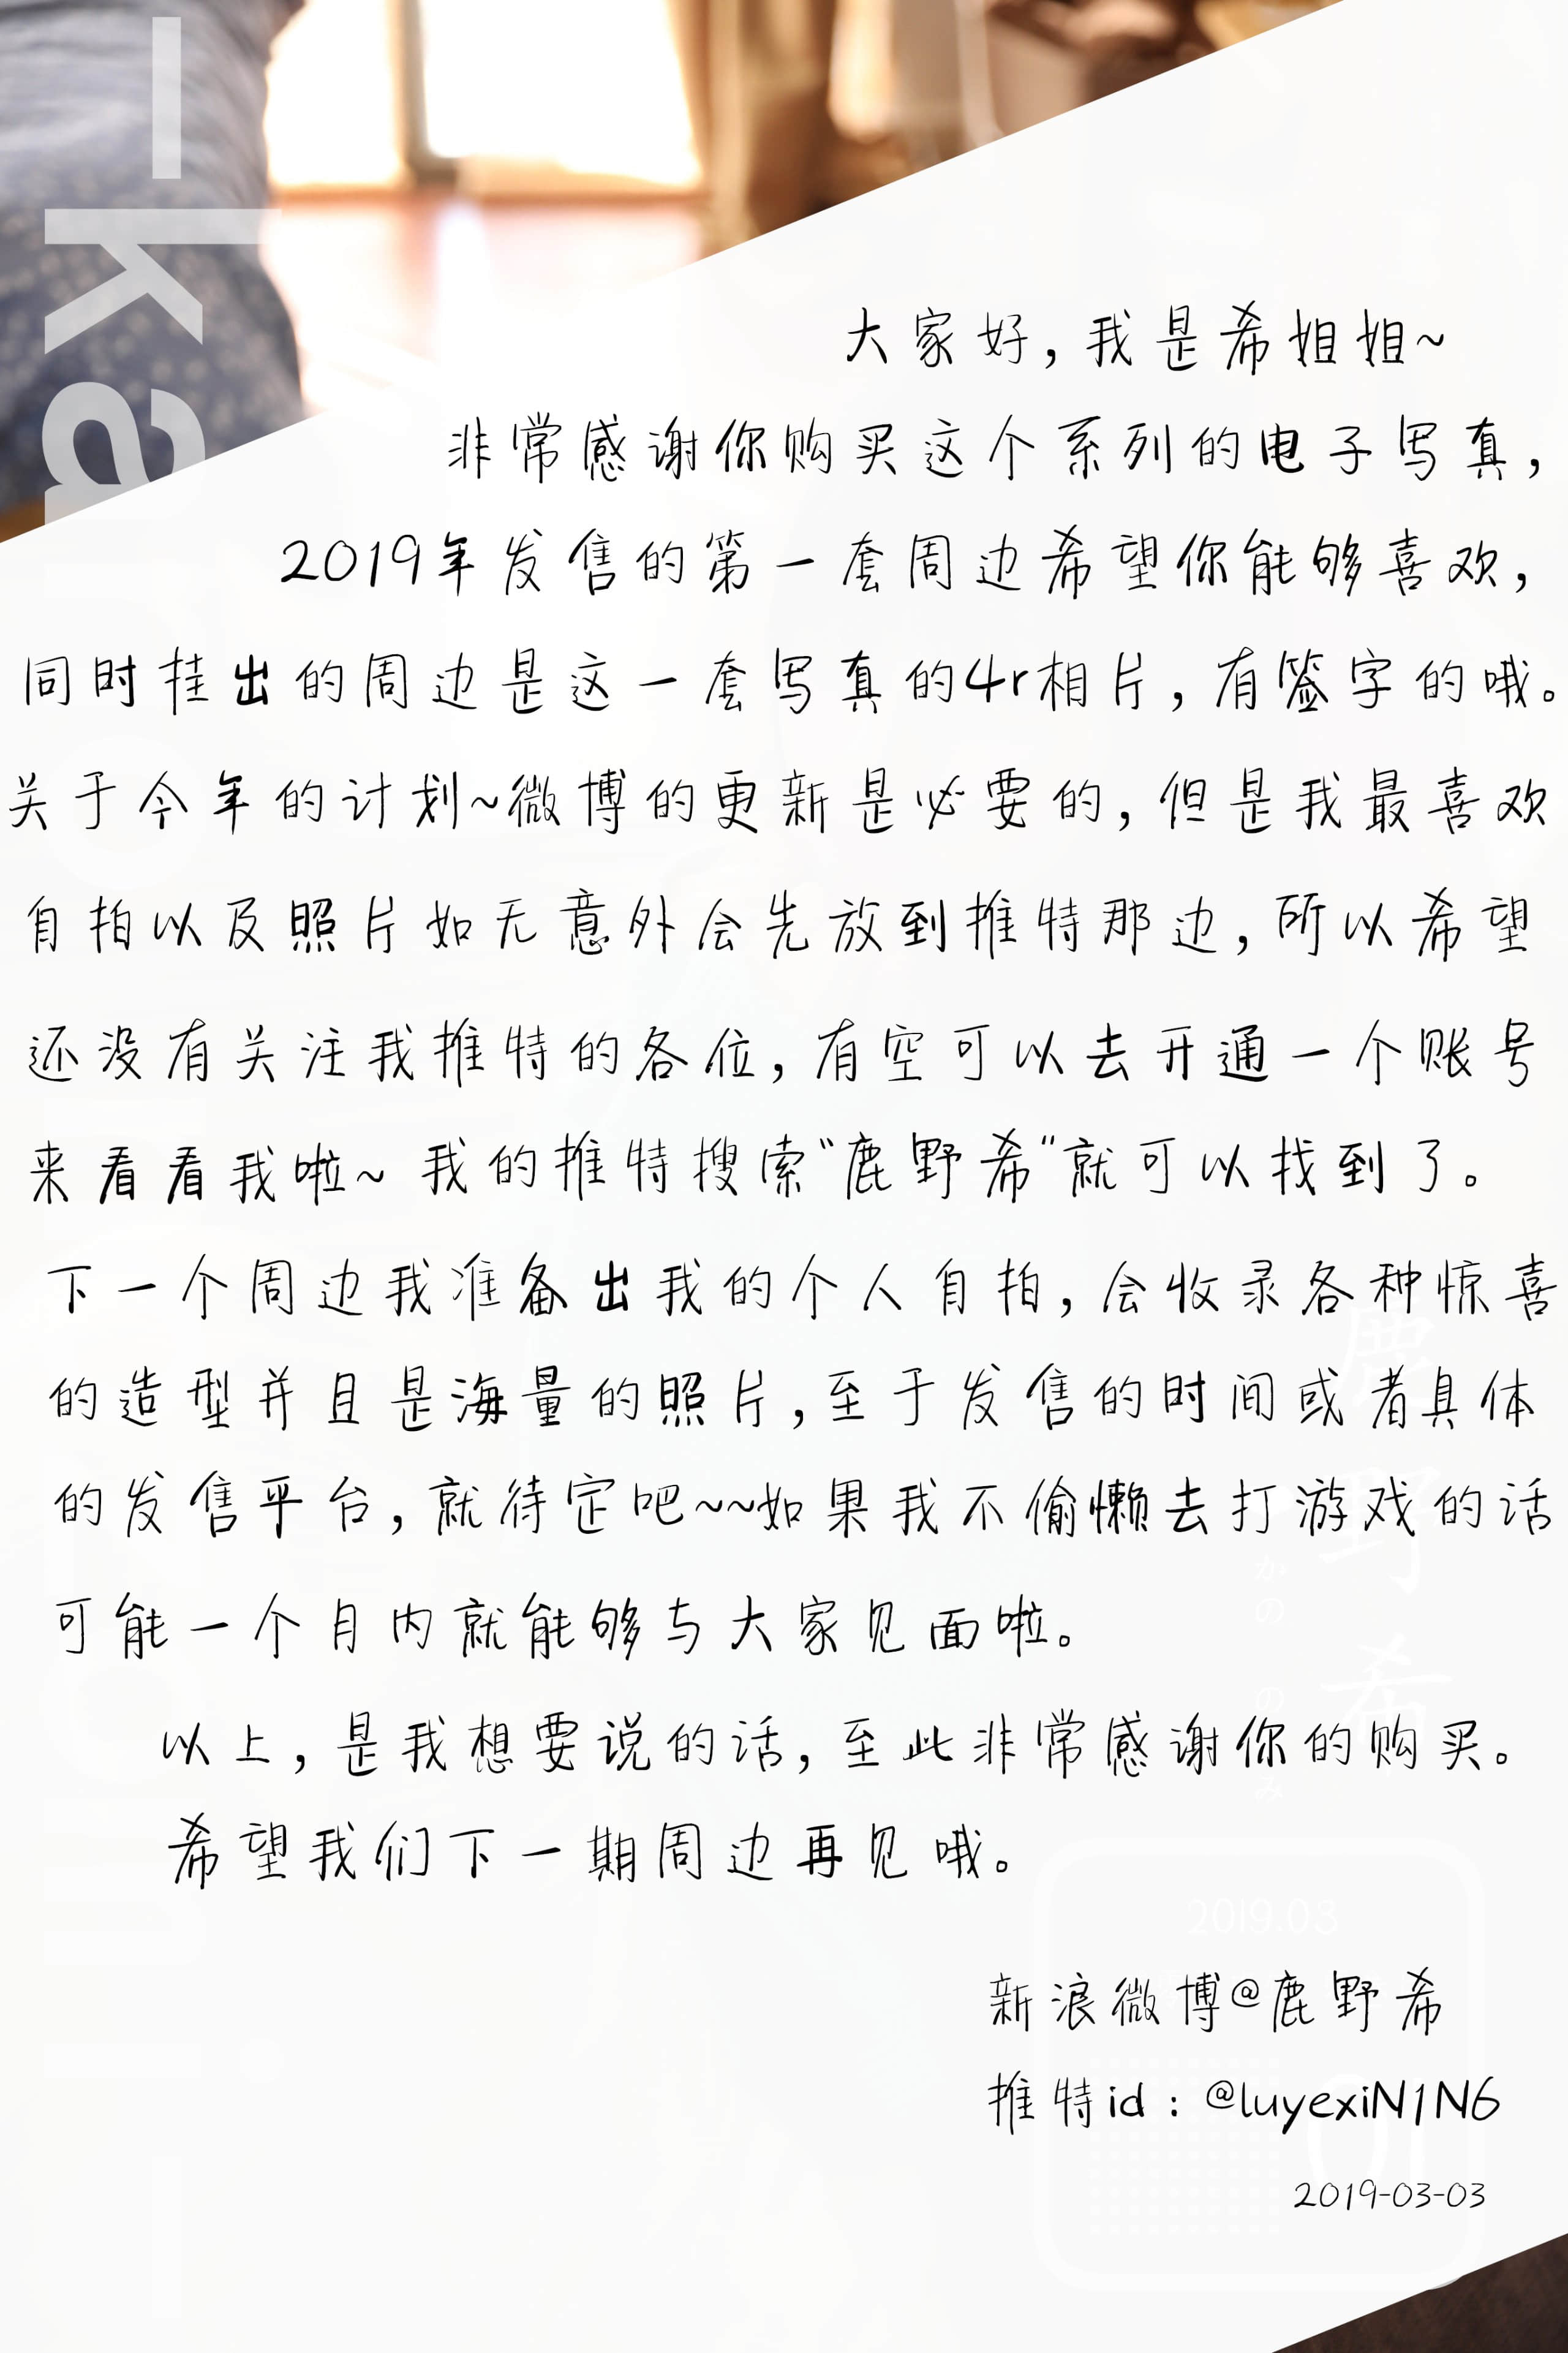 大家好，我是希姐姐~
非常感谢你购买这个系列的电子写真，
2019年发售的第一套周边希望你能够喜欢，
同时挂出的周边是这一套写真的4r相片，有签字的哦。
关于今年的计划~微博的更新是必要的，但是我最喜欢
自拍以及照片如无意外会先放到推特那边，所以希望
还没有关注我推特的各位，有空可以去开通一个账号
来看看我啦~ 我的推特搜索“鹿野希”就可以找到了。
下一个周边我准备出我的个人自拍，会收录各种惊喜
的造型并且是海量的照片，至于发售的时间或者具体
的发售平台，就待定吧~~如果我不偷懒去打游戏的话
可能一个月内就能够与大家见面啦。
以上，是我想要说的话，至此非常感谢你的购买。
希望我们下一期周边再见哦。
新浪微博@鹿野希
推特id：@luyexiN1N6
2019-03-03
鹿野希
かの のぞみ
2019.03
01